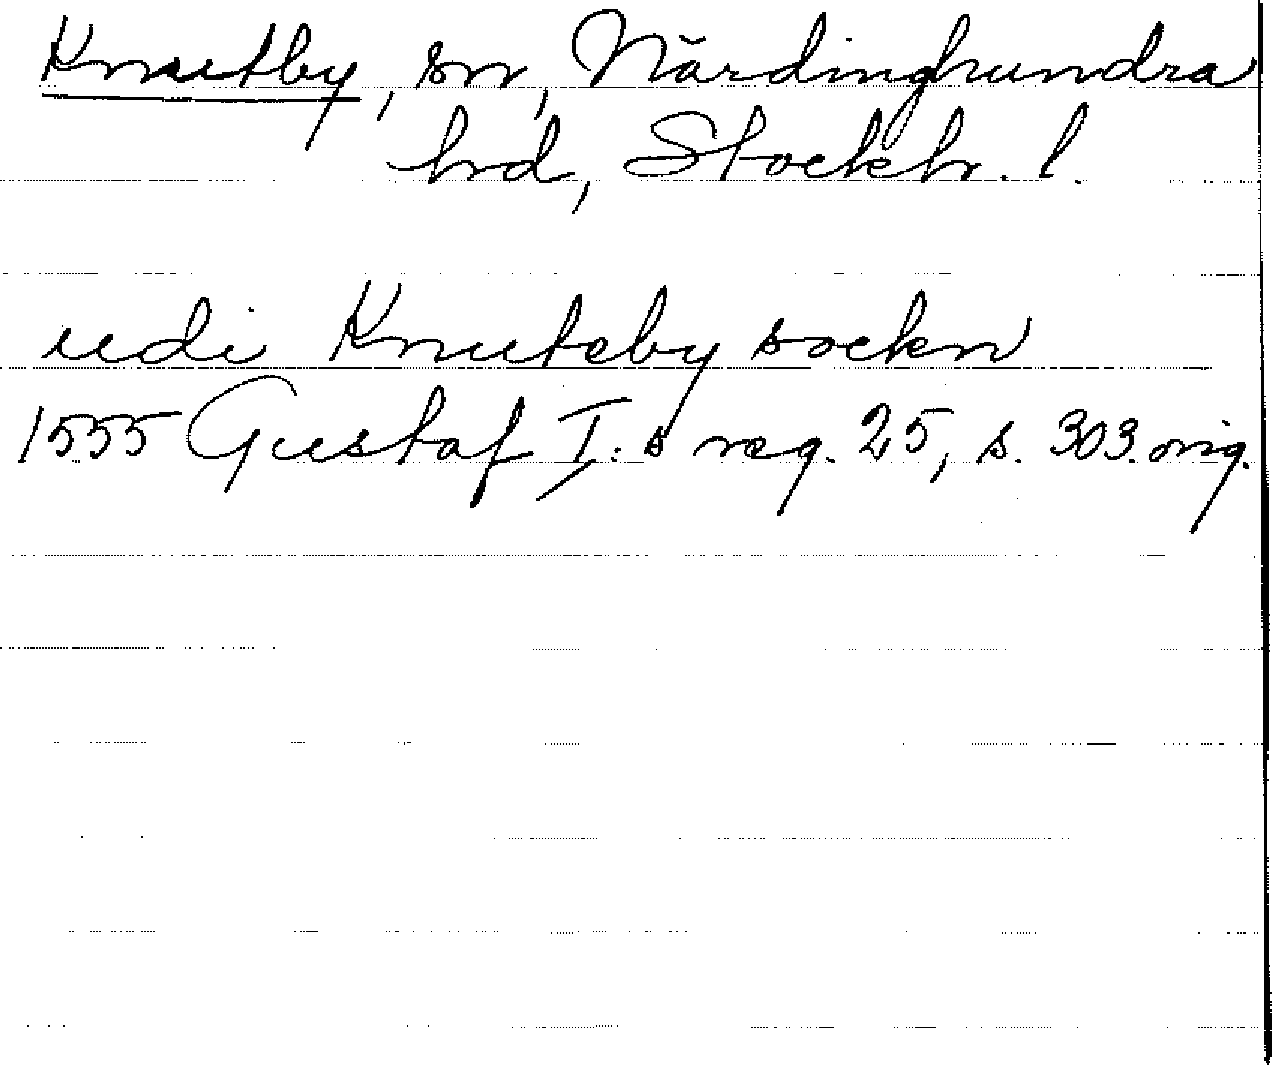 Knutby, sn, Närdinghundra
hrd, Stockh. l.
udi Knuteby sockn
1555 Gustaf I:s reg. 25, s. 303. orig.